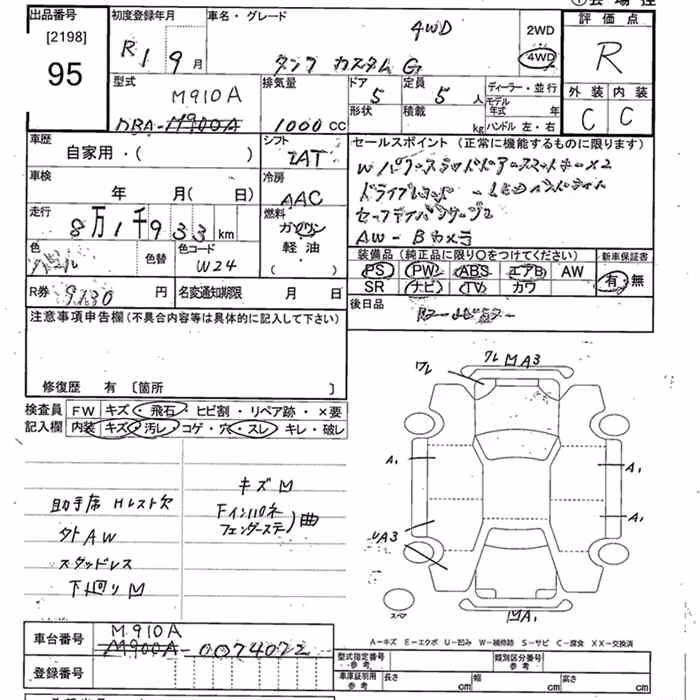 出品番号
[2198]
95
初度登録年月
R1 9月
車名・グレード
4WD
タンク カスタム G
2WD
4WD
評価点
R
外装 内装
C C
型式
M910A
DBA-M900A
排気量
1000 CC
ドア
5
形状
定員
5人
積載
kg
ディーラー・並行
モデル年式 年
ハンドル 左・右
車歴
自家用・( )
シフト
IAT
車検
年 月( 日)
冷房
AAC
走行
8万1千933km
燃料
ガソリン
軽油
( )
色
パール
色替
色コード
W24
R券
9130円
名変通知期限 月 日
セールスポイント (正常に機能するものに限ります)
AW - Bカメラ
装備品 (純正品に限り○をつけてください)
PS PW ABS エアB AW
SR ナビ TV カワ
新車保証書
有・無
後日品
注意事項申告欄(不具合内容等は具体的に記入して下さい)
修復歴 有 〔箇所 〕
検査員記入欄
FW キズ・飛石・ヒビ割・リペア跡・×要
内装 キズ・汚レ・コゲ・穴・スレ・キレ・破レ
助手席 Hレスト欠
タト AW
スタッドレス
下廻りM
キズM
Fインパネ
フェンダーステ)曲
ワレ
ワレMA3
A1
UA3
A1
A1
MA1
スペア
A-キズ E-エクボ U-凹み W-補修跡 S-サビ C-腐食 XX-交換済
車台番号
M910A
M900A-0074072
登録番号
型式指定番号
参考
類別区分番号
参考
車庫証明用
参考
長さ cm
幅 cm
高さ cm